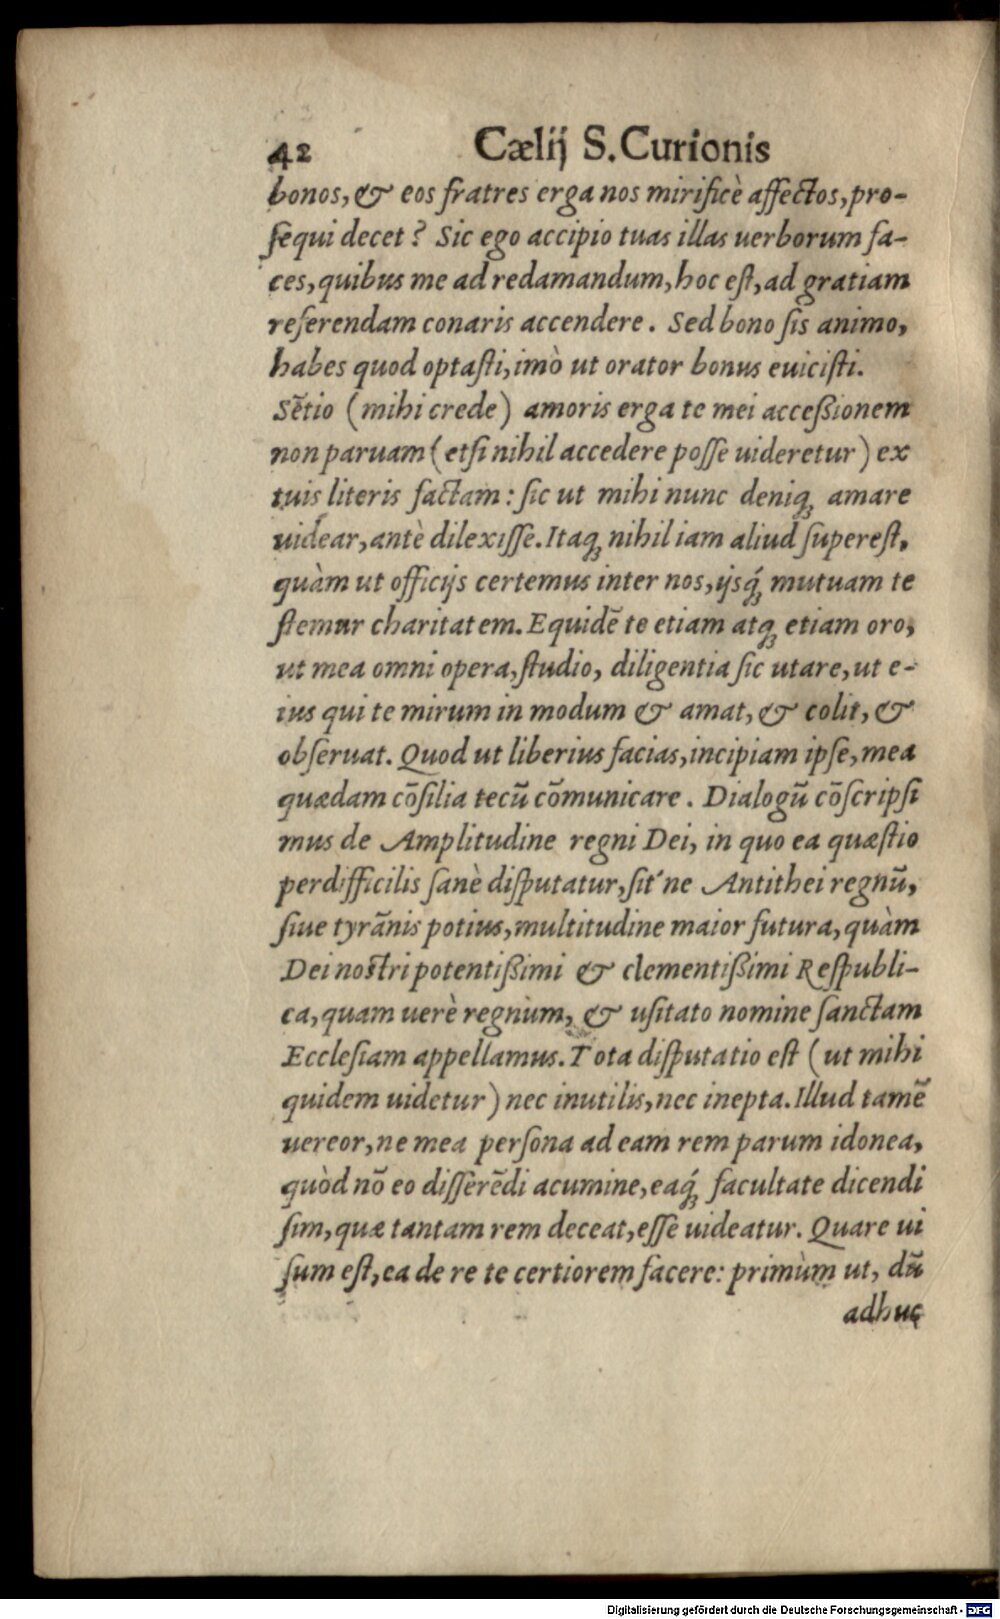 42 Cælij S. Curionis
bonos, & eos fratres erga nos mirificè affectos, pro-
sequi decet? Sic ego accipio tuas illas uerborum fa-
ces, quibus me ad redamandum, hoc est, ad gratiam
referendam conaris accendere. Sed bono sis animo,
habes quod optasti, imò ut orator bonus euicisti.
Sētio (mihi crede) amoris erga te mei accessionem
non paruam (etsi nihil accedere posse uideretur) ex
tuis literis factam: sic ut mihi nunc deniq; amare
uidear, antè dilexisse. Itaq; nihil iam aliud superest,
quàm ut officijs certemus inter nos, ijsq́; mutuam te
stemur charitatem. Equidē te etiam atq; etiam oro,
ut mea omni opera, studio, diligentia sic utare, ut e-
ius qui te mirum in modum & amat, & colit, &
obseruat. Quod ut liberius facias, incipiam ipse, mea
quædam cōsilia tecū cōmunicare. Dialogū cōscripsi
mus de Amplitudine regni Dei, in quo ea quæstio
perdifficilis sanè disputatur, sit'ne Antithei regnū,
siue tyrānis potius, multitudine maior futura, quàm
Dei nostri potentissimi & clementissimi Respubli-
ca, quam uerè regnum, & usitato nomine sanctam
Ecclesiam appellamus. Tota disputatio est (ut mihi
quidem uidetur) nec inutilis, nec inepta. Illud tamē
uereor, ne mea persona ad eam rem parum idonea,
quòd nō eo disserēdi acumine, eaq́; facultate dicendi
sim, quæ tantam rem deceat, esse uideatur. Quare ui
sum est, ea de re te certiorem facere: primùm ut, dū
adhuc
Digitalisierung gefördert durch die Deutsche Forschungsgemeinschaft - DFG